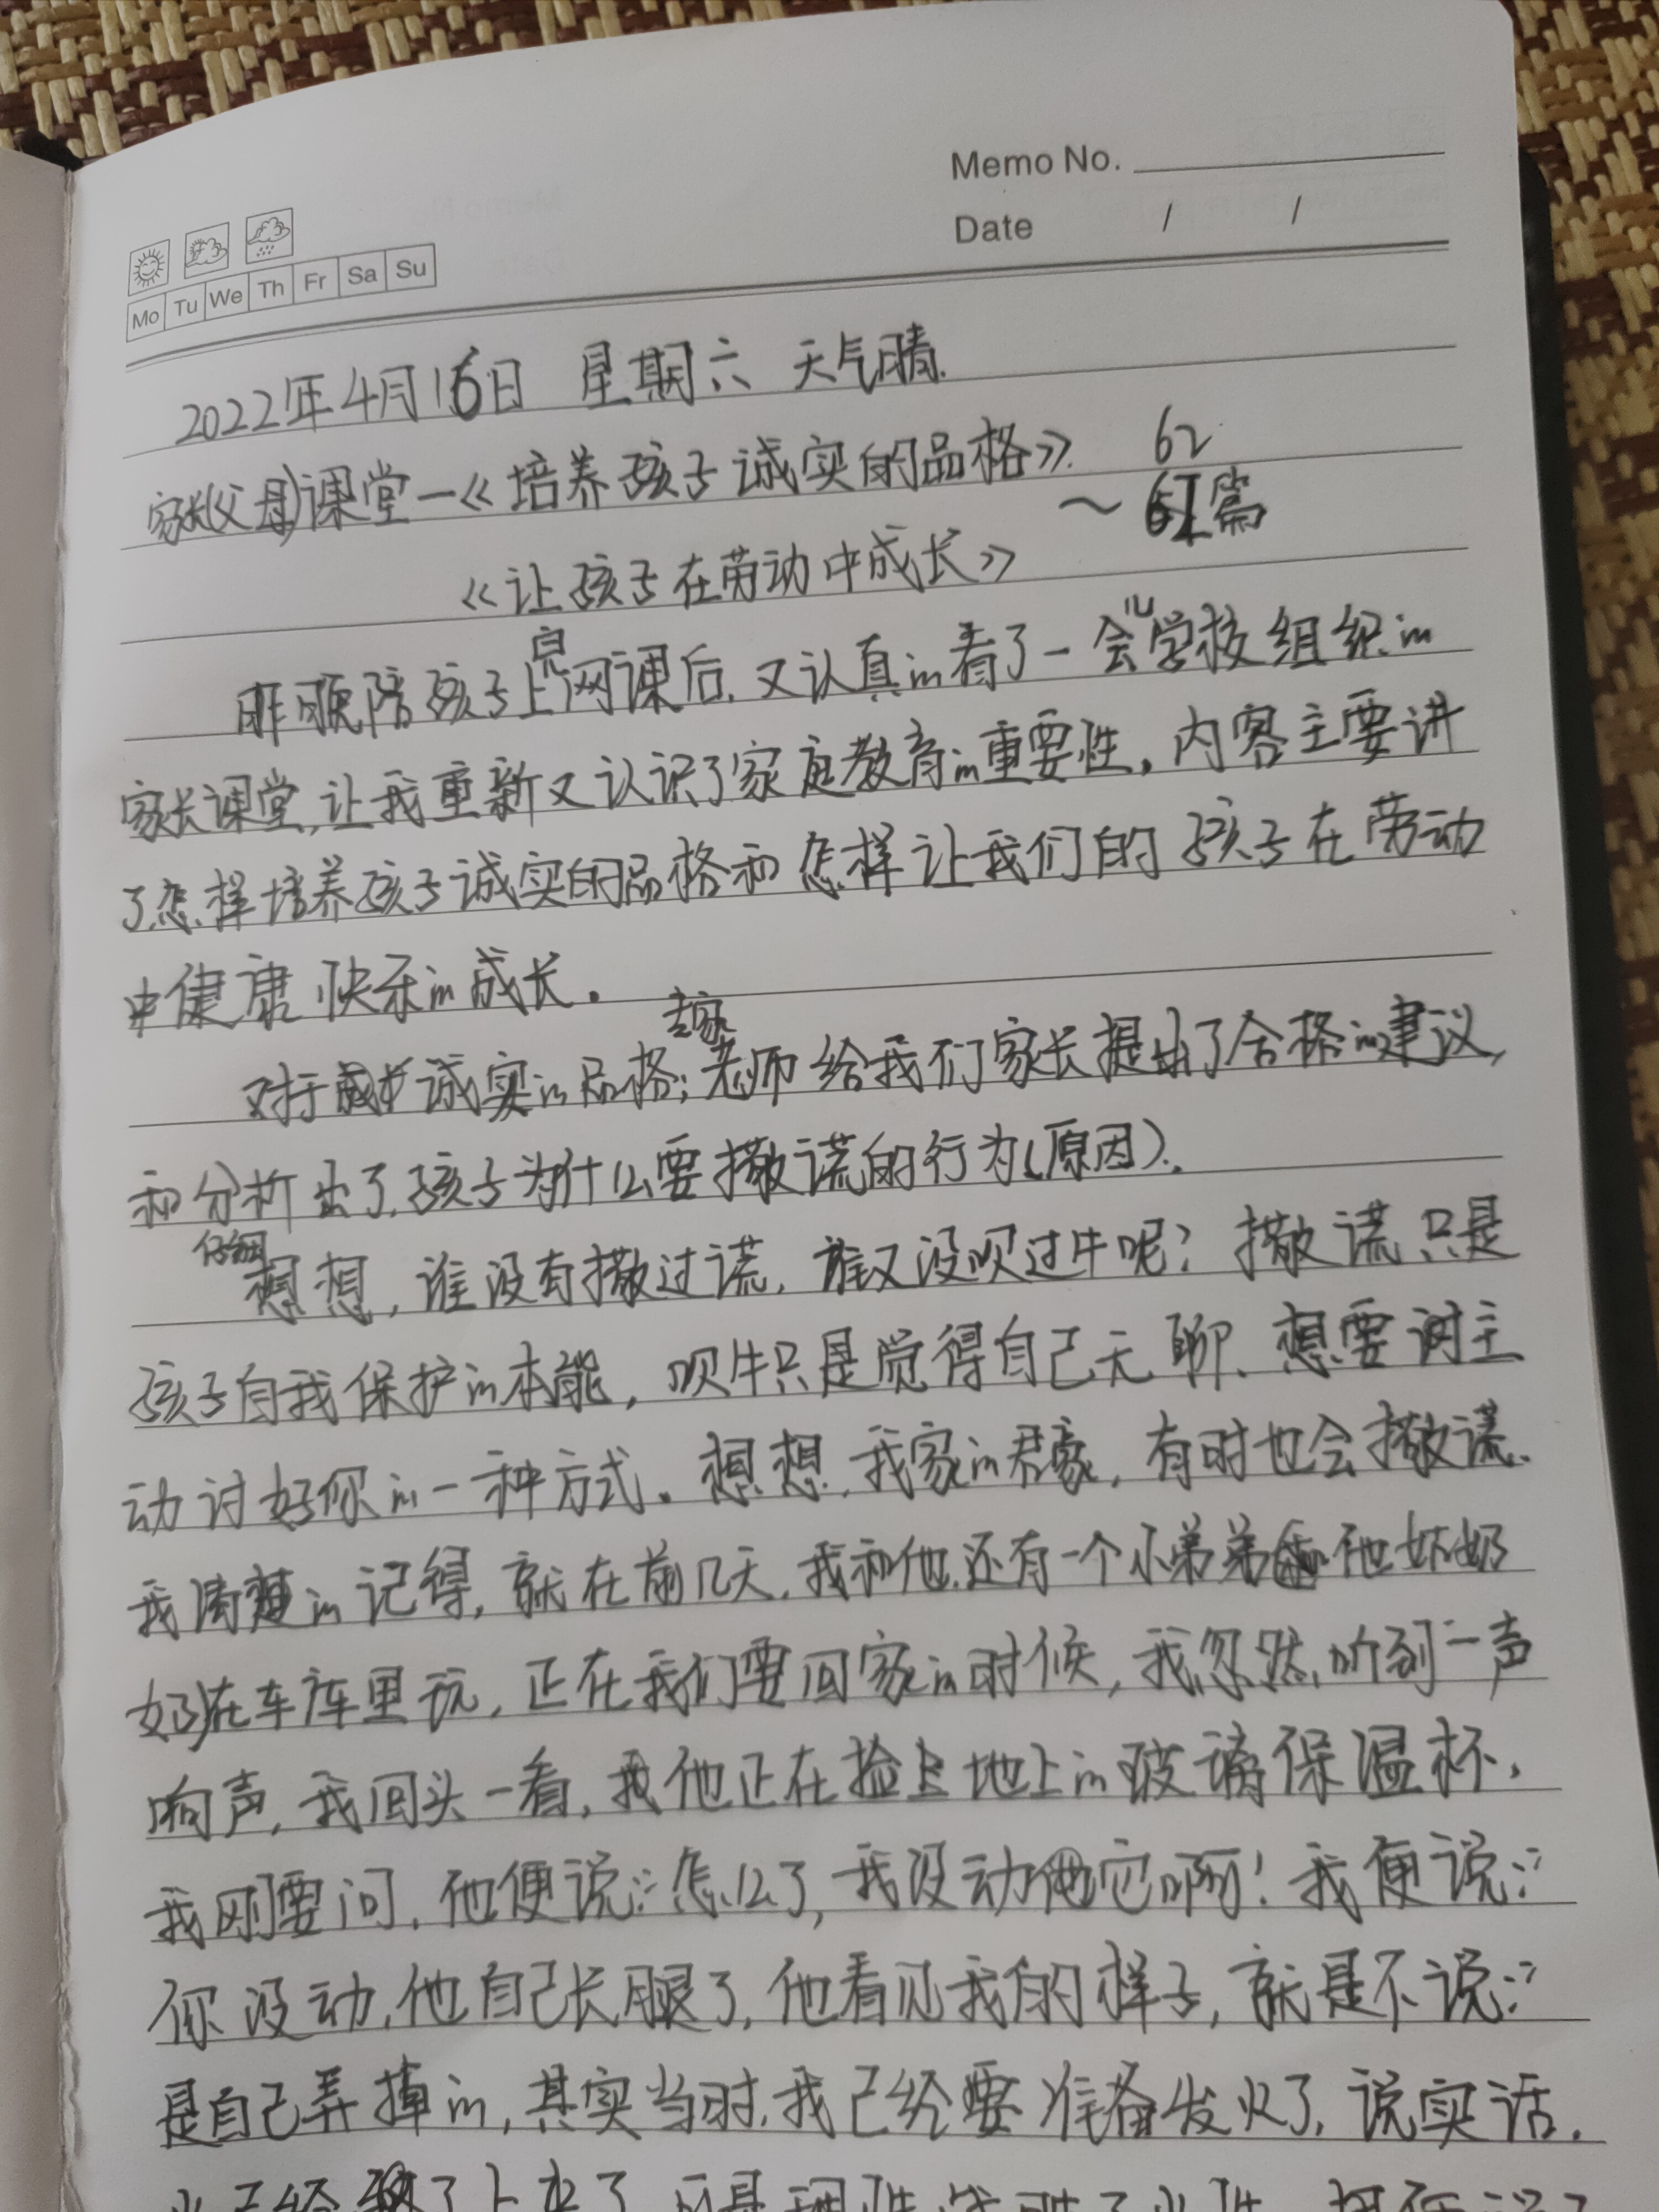 Memo No.
Date / /
Mo Tu We Th Fr Sa Su
2022年4月16日 星期六 天气晴.
家长(父母)课堂—《培养孩子诚实的品格》. 62
《让孩子在劳动中成长》 ~ 篇
昨晚陪孩子上完网课后.又认真的看了一会儿学校组织的
家长课堂,让我重新又认识了家庭教育的重要性。内容主要讲
了怎样培养孩子诚实的品格和怎样让我们的孩子在劳动
中健康快乐的成长。
对于诚实的品格;专家老师给我们家长提出了合格的建议,
和分析出了.孩子为什么要撒谎的行为(原因).
仔细想想,谁没有撒过谎,谁又没吹过牛呢?撒谎只是
孩子自我保护的本能,吹牛只是觉得自己无聊、想要讨主
动讨好你的一种方式。想想,我家的君豪,有时也会撒谎.
我清楚的记得,就在前几天,我和他.还有一个小弟弟和他奶
奶在车库里玩,正在我们要回家的时候,我忽然,听到一声
响声,我回头一看,他正在捡地上的玻璃保温杯,
我刚要问,他便说:怎么了,我没动它啊!我便说:
你没动,他自己长腿了,他看见我的样子,就是不说:
是自己弄掉的,其实当时.我已经要准备发火了,说实话.